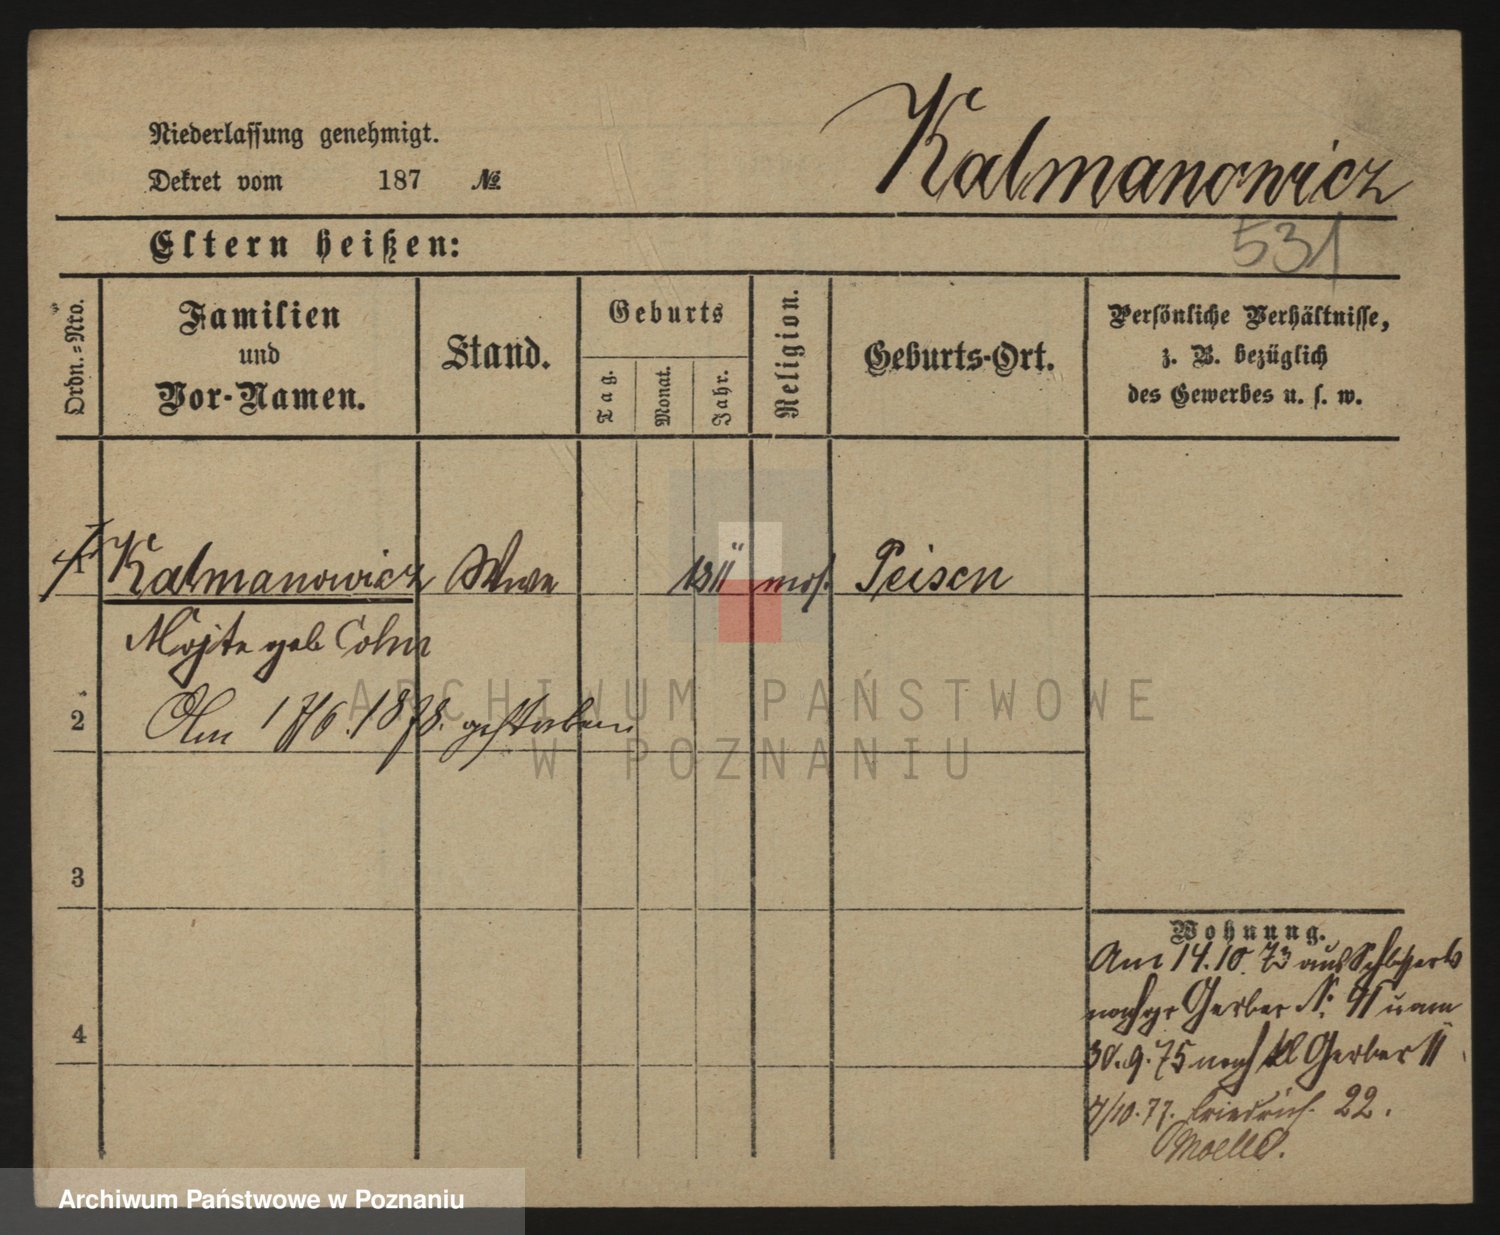 Niederlassung genehmigt.
Dekret vom 187 №
Kalmanowicz
531
Eltern heißen:
Ordn.=Nro.
Familien
und
Vor-Namen.
Stand.
Geburts
Tag.
Monat.
Jahr.
Religion.
Geburts-Ort.
Persönliche Verhältnisse,
z. B. bezüglich
des Gewerbes u. s. w.
1 Kalmanowicz Wwe 1811 mos. Peisen
geb Cohn
2 Am 17/6. 1878. gestorben
3
4
Wohnung.
Am 14.10.73 aus
nach gr Gerber N: 41 u am
30.9.75 nach kl Gerber 11
4/10.77. Friedrich. 22.
ARCHIWUM PAŃSTWOWE
W POZNANIU
Archiwum Państwowe w Poznaniu